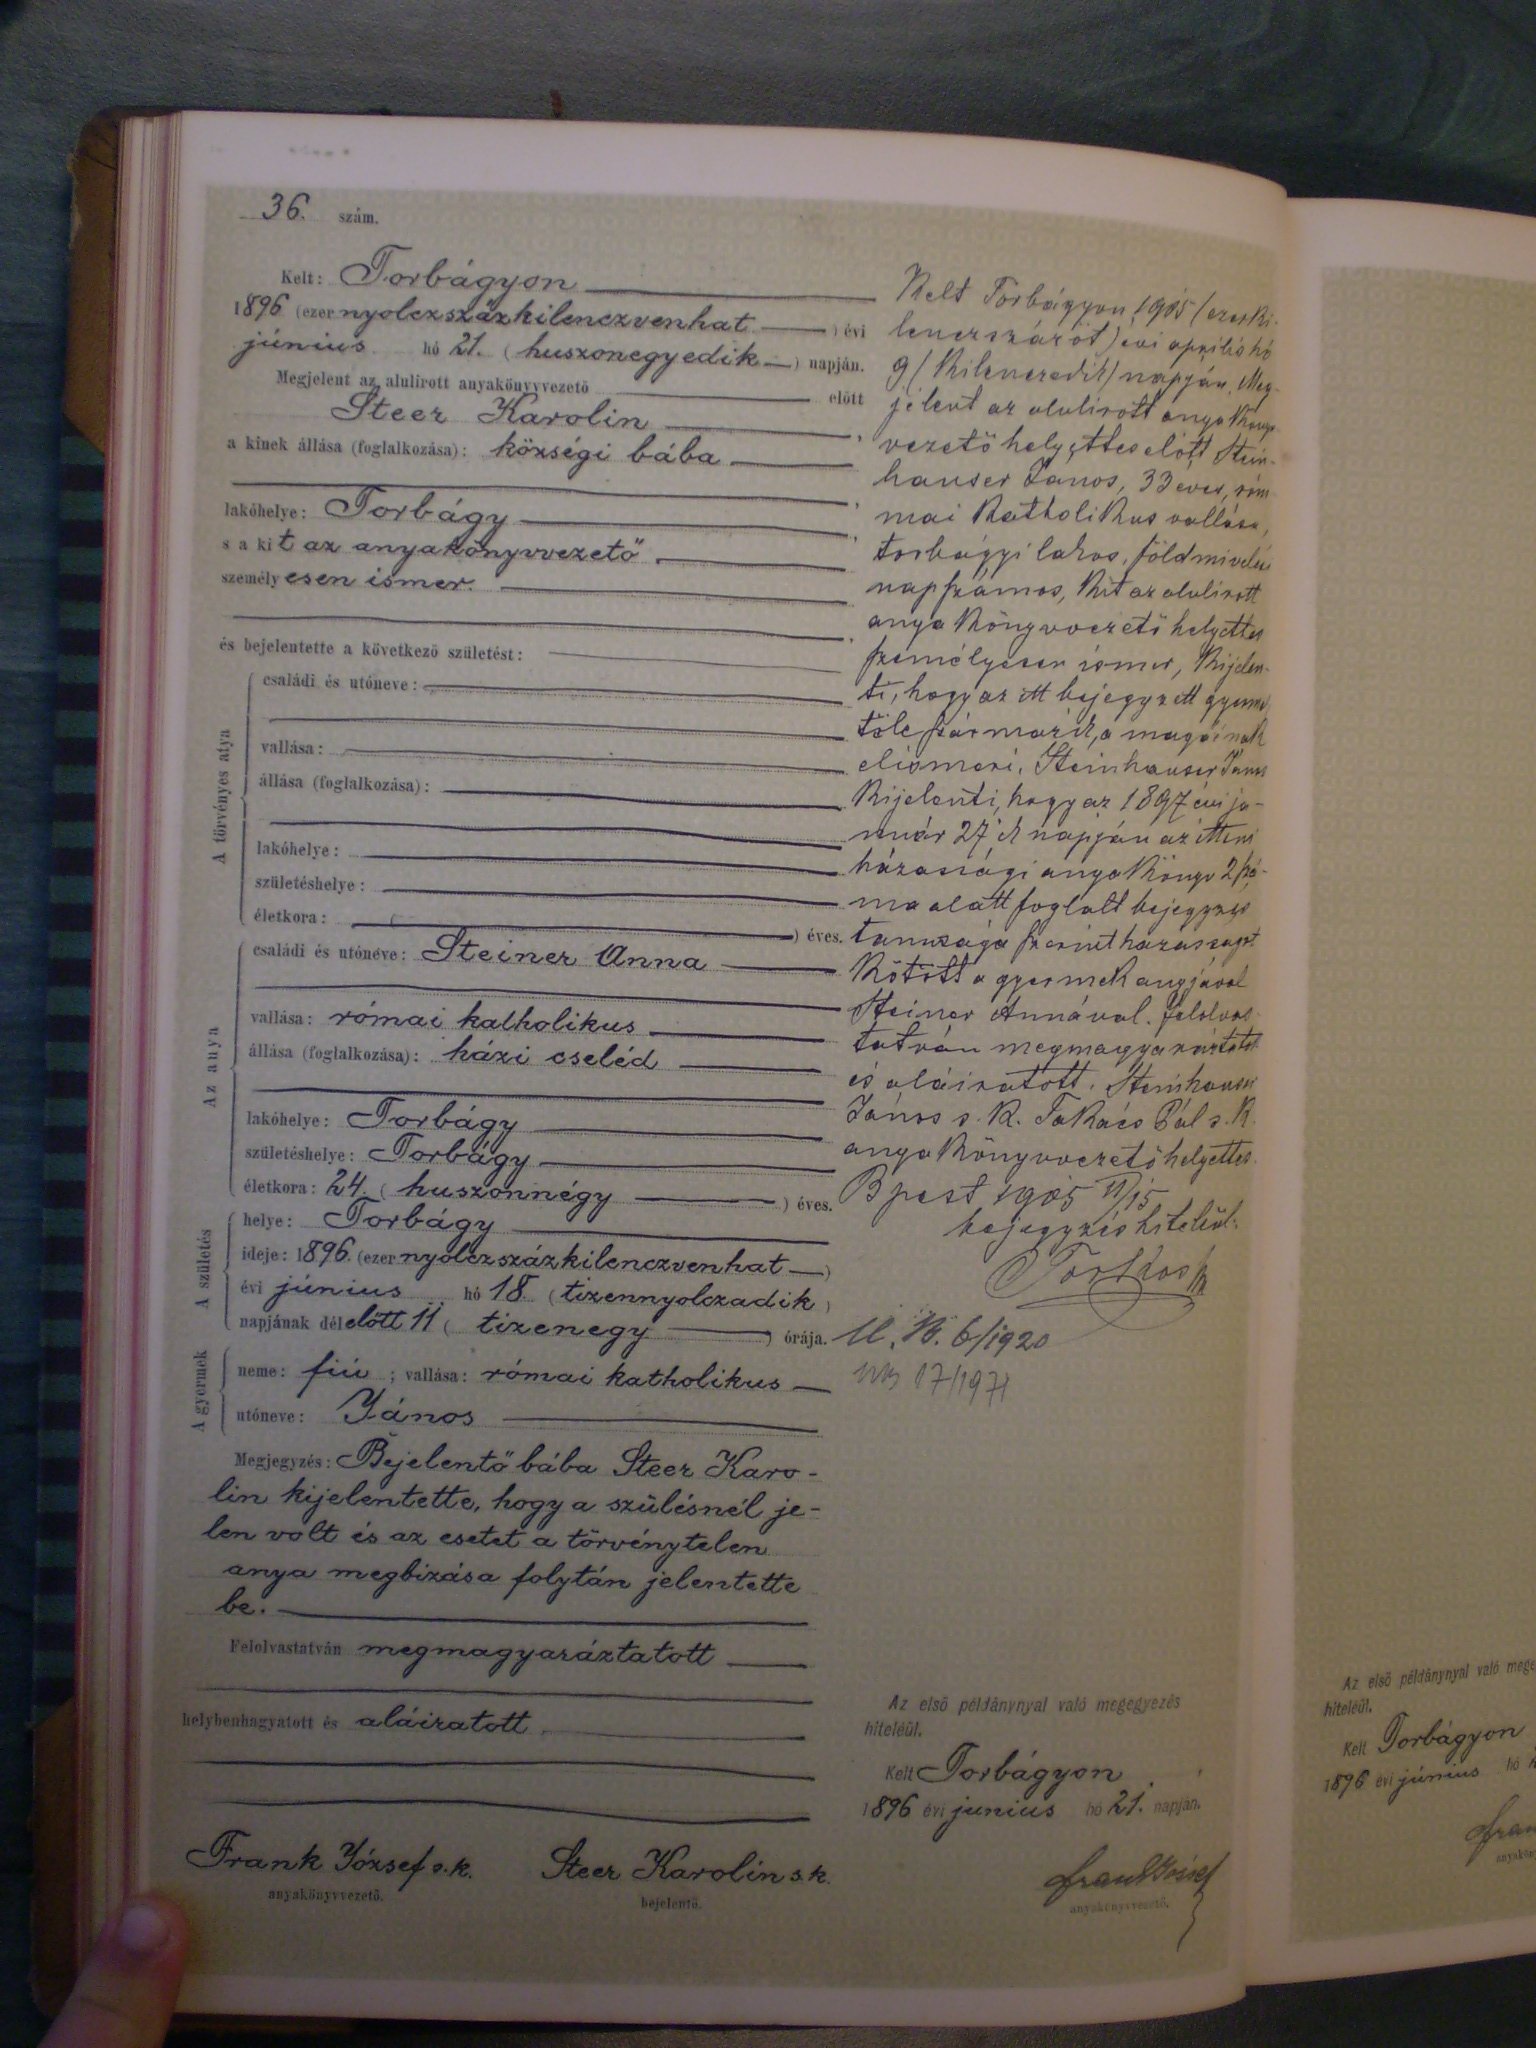 36. szám.
Kelt: Torbágyon
1896 (ezer nyolczszázkilenczvenhat) évi
június hó 21. (huszonegyedik) napján.
Megjelent az alulirott anyakönyvvezető előtt
Steer Karolin,
a kinek állása (foglalkozása): községi bába
lakóhelye: Torbágy,
s a kit az anyakönyvvezető
személyesen ismer.
és bejelentette a következő születést:
A törvényes atya
családi és utóneve:
vallása:
állása (foglalkozása):
lakóhelye:
születéshelye:
életkora: ( ) éves.
Az anya
családi és utóneve: Steiner Anna
vallása: római katholikus
állása (foglalkozása): házi cseléd
lakóhelye: Torbágy
születéshelye: Torbágy
életkora: 24. (huszonnégy) éves.
A születés
helye: Torbágy
ideje: 1896. (ezer nyolczszázkilenczvenhat)
évi június hó 18 (tizennyolczadik)
napjának délelőtt 11 (tizenegy) órája.
A gyermek
neme: fiú; vallása: római katholikus
utóneve: János
Megjegyzés: Bejelentő bába Steer Karo-
lin kijelentette, hogy a szülésnél je-
len volt és az esetet a törvénytelen
anya megbizása folytán jelentette
be.
Felolvastatván megmagyaráztatott
helybenhagyatott és aláiratott
Frank József s.k. Steer Karolin s.k.
anyakönyvvezető. bejelentő.
Kelt Torbágyon, 1905 (ezerki-
lenczszázöt) évi április hó
9 (kilenczedik) napján. Meg-
jelent az alulirott anyakönyv
vezető helyettes előtt Stein-
hauser János, 33 éves, ró-
mai katholikus vallásu,
torbágyi lakos, földmivelési
napszámos, kit az alulirott
anyakönyvvezető helyettes
személyesen ismer, kijelen-
ti, hogy az itt bejegyzett gyermek
tőle származik, a magáénak
elismeri. Steinhauser János
kijelenti, hogy az 1897 évi ja-
nuár 27ik napján az itteni
házassági anyakönyv 2 szá-
ma alatt foglalt bejegyzés
tanusága szerint házasságot
kötött a gyermek anyjával
Steiner Annával. Felolvas-
tatván megmagyaráztatott
és aláiratott. Steinhauser
János s. k. Takács Pál s. k.
anyakönyvvezető helyettes.
Bpest 1905 VI/15
bejegyzés hiteléül:
U. K. 6/1920
17/1971
Az első példánynyal való megegyezés
hiteléül.
Kelt Torbágyon
1896 évi junius hó 21. napján.
Frank József
anyakönyvvezető.
Az első példánynyal való
hiteléül.
Kelt Torbágyon
1896 évi június hó